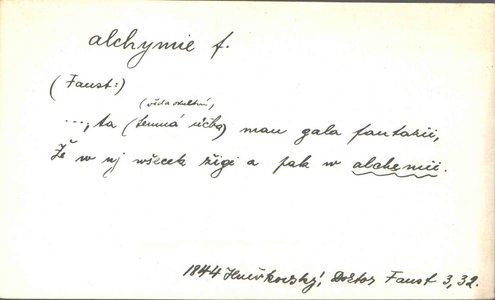 alchymie f.
(Faust:)
(věda okultní,
..., ta (temná učba) mau gala fantazii,
Že w nj wšecek žigi a pak w alchemii.
1844 Hněvkovský, Doktor Faust 3, 32.